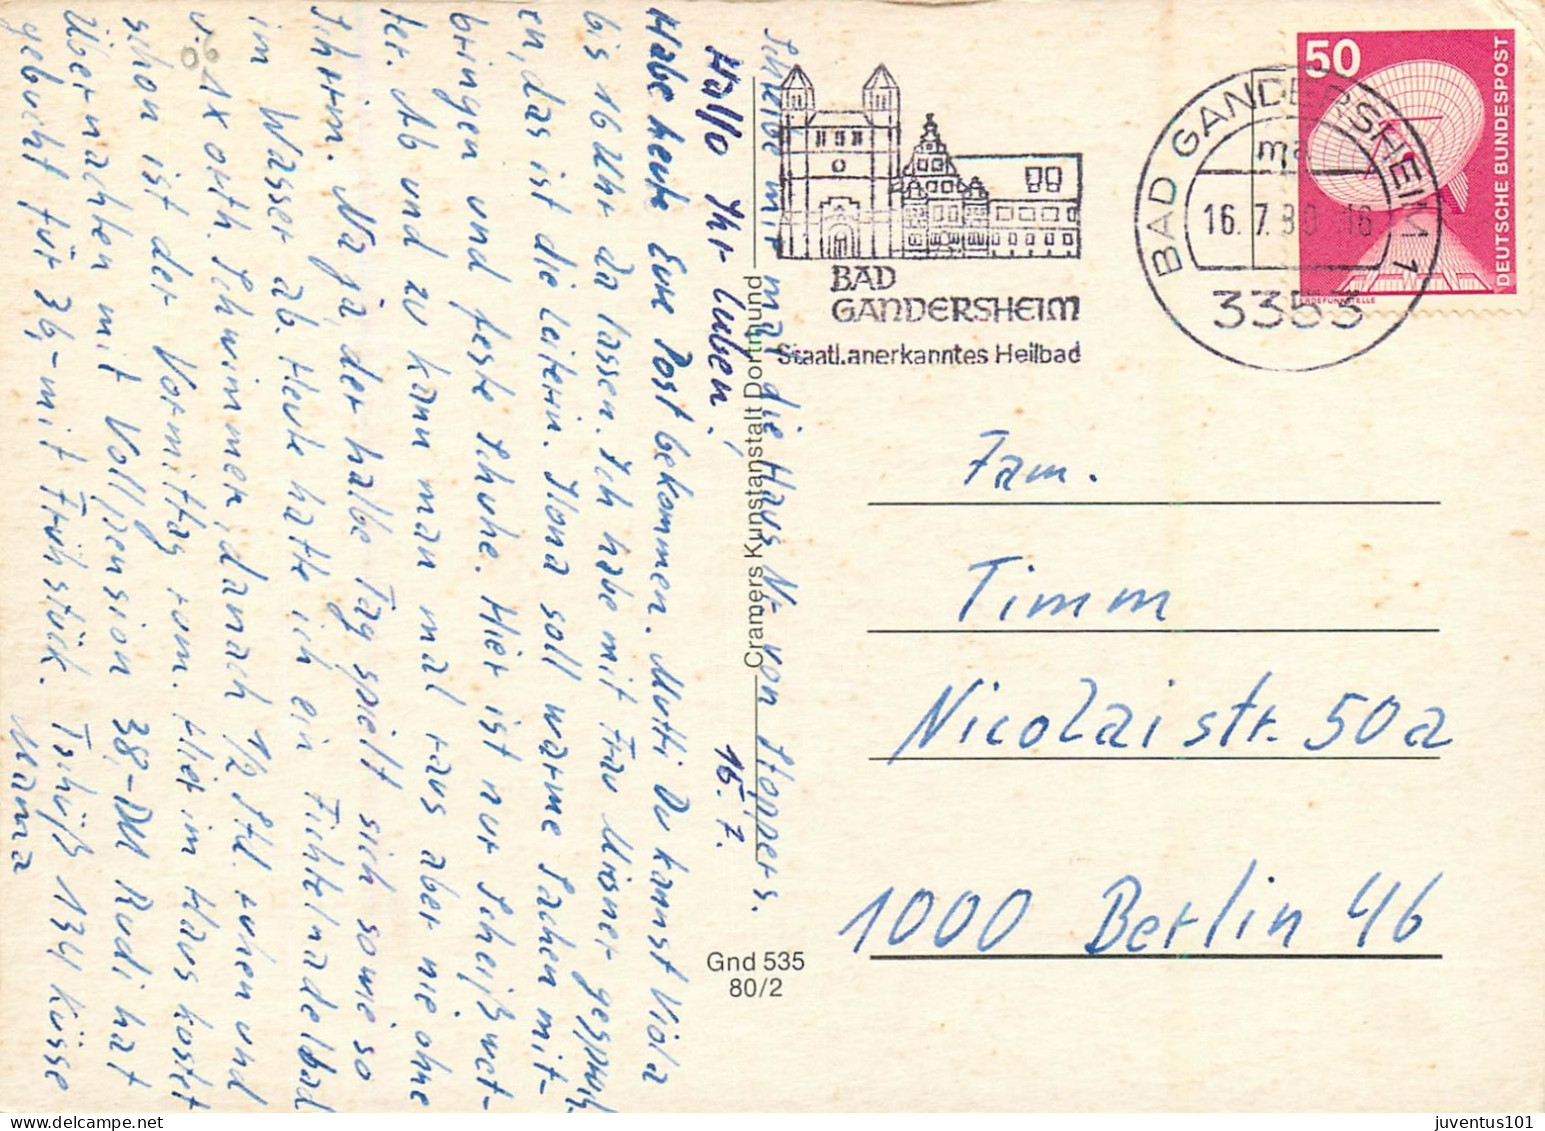 Hallo Ihr Lieben! 15.7.
Habe heute Eure Post bekommen. Mutti Du kannst Viola
bis 16 Uhr da lassen. Ich habe mit Frau Misner gesproch
en, das ist die Leiterin. Ilona soll warme Sachen mit-
bringen und feste Schuhe. Hier ist nur Scheißwet-
ter. Ab und zu kann man mal raus aber nie ohne
Schirm. Na ja, der halbe Tag spielt sich sowieso
im Wasser ab. Heute hatte ich ein Fichtelnadelbad
u. 1x orth. Schwimmen, danach 1/2 Std. ruhen und
schon ist der Vormittag rum. Hier im Haus kostet
Übernachten mit Vollpension 38,-DM Rudi hat
gebucht für 36,- mit Frühstück. Tschüß 134 Küsse
Mama
Schreibe mir mal die Haus Nr. von Stoppers.
06
BAD
GANDERSHEIM
Staatl.anerkanntes Heilbad
BAD GANDERSHEIM 1
ma
16.7.80-16
3353
50
DEUTSCHE BUNDESPOST
ERDEFUNKSTELLE
Cramers Kunstanstalt Dortmund
Gnd 535
80/2
Fam.
Timm
Nicolaistr. 50a
1000 Berlin 46
juventus101